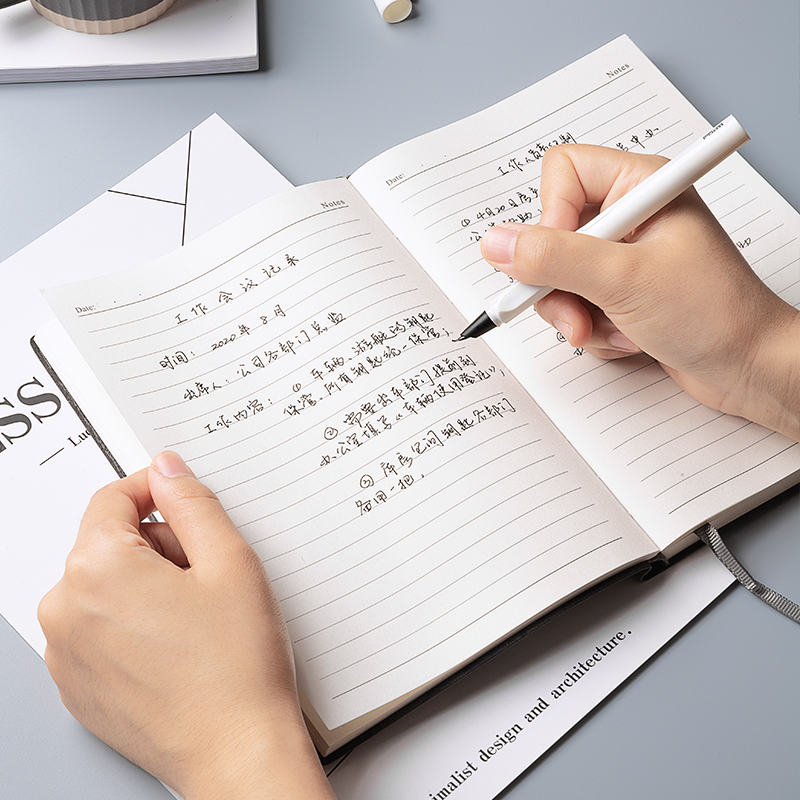 Notes
Date:
工作会议记录
时间: 2020年8月
出席人: 公司各部门总监
工作内容: ① 车辆、游艇的钥匙
保管,所有钥匙统一保管;
② 需要出车部门提前到
办公室填写《车辆使用登记》
③ 库房空间钥匙各部门
备用一把.
Notes
Date:
工作人员
① 4月20日
ss
— Lu
imalist design and architecture.